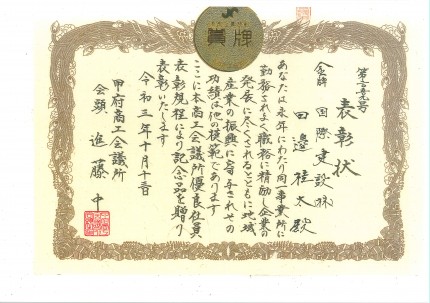 賞牌
表彰状
金牌 国際建設(株)
田邉桂太殿
あなたは永年にわたり同一事業所に
勤務されよく職務に精励し企業の
発展に尽くされるとともに地域
産業の振興に寄与されその
功績は他の模範であります
ここに本商工会議所優良社員
表彰規程により記念品を贈り
表彰いたします
令和三年十月十三日
甲府商工会議所
会頭 進藤中